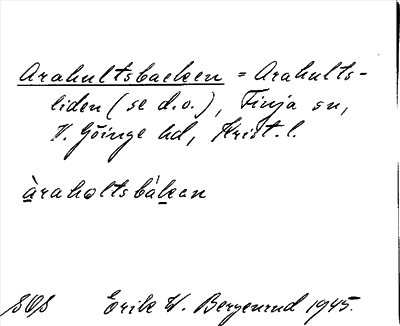 Arahultsbacken = Arahults-
liden (se d.o.), Finja sn,
V. Göinge hd, Krist. l.
àraholtsbákan
SOS Erik W. Bergenrud 1945.